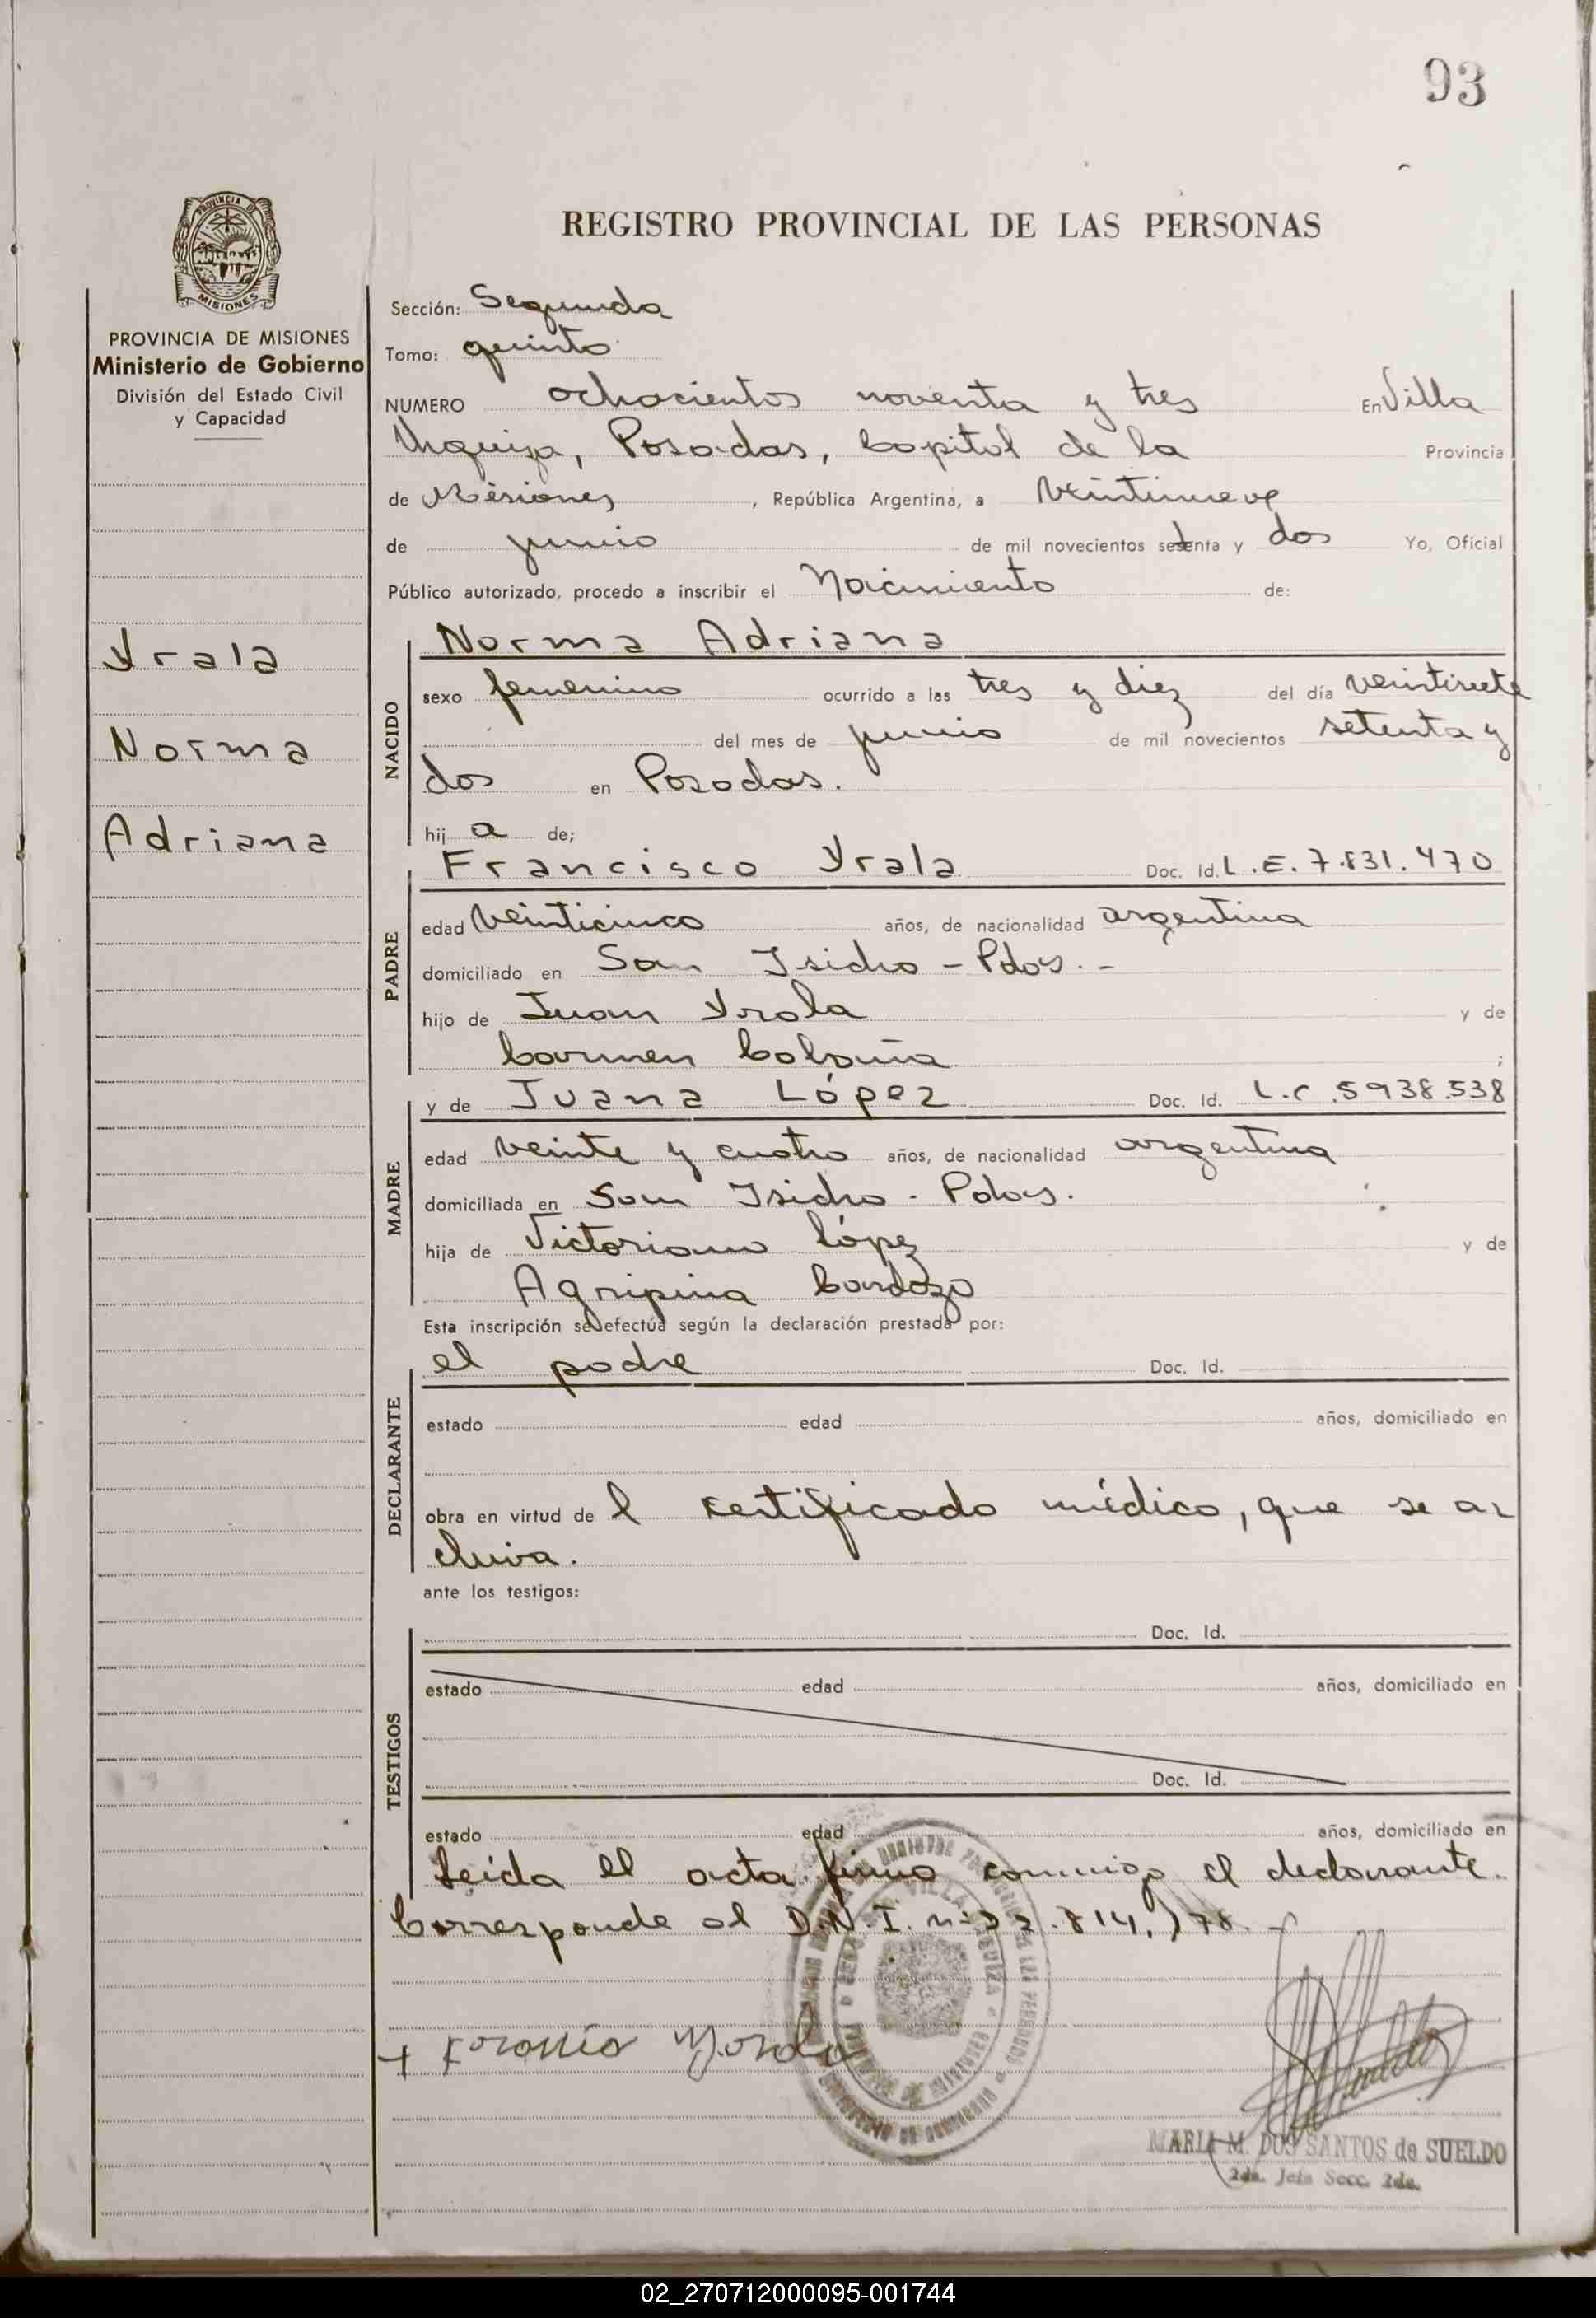 93
REGISTRO PROVINCIAL DE LAS PERSONAS
MISIONES
PROVINCIA DE MISIONES
Ministerio de Gobierno
División del Estado Civil
y Capacidad
Yrala
Norma
Adriana
Sección: Segunda
Tomo: quinto
NUMERO ochocientos noventa y tres En Villa
Urquiza, Posadas, Capital de la Provincia
de Misiones, República Argentina, a veintinueve
de junio de mil novecientos setenta y dos Yo, Oficial
Público autorizado, procedo a inscribir el Nacimiento de:
NACIDO
Norma Adriana
sexo femenino ocurrido a las tres y diez del día veintisiete
del mes de junio de mil novecientos setenta y
dos en Posadas.
hij a de;
PADRE
Francisco Yrala Doc. Id. L.E. 7.831.470
edad veinticinco años, de nacionalidad argentina
domiciliado en San Isidro - Pdas. -
hijo de Juan Yrala y de
Carmen ;
MADRE
y de Juana López Doc. Id. L.C. 5938.538
edad veinte y cuatro años, de nacionalidad argentina
domiciliada en San Isidro - Pdas.
hija de Victoriano López y de
Agripina Cardozo
Esta inscripción se efectúa según la declaración prestada por:
DECLARANTE
el padre Doc. Id.
estado edad años, domiciliado en
obra en virtud de l certificado médico, que se ar
chiva.
ante los testigos:
TESTIGOS
Doc. Id.
estado edad años, domiciliado en
Doc. Id.
estado edad años, domiciliado en
Leída el acta firma conmigo el declarante.
Corresponde al D.N.I. nº
MARIA M. DOS SANTOS de SUELDO
2da. Jefa Secc. 2da.
02_270712000095-001744